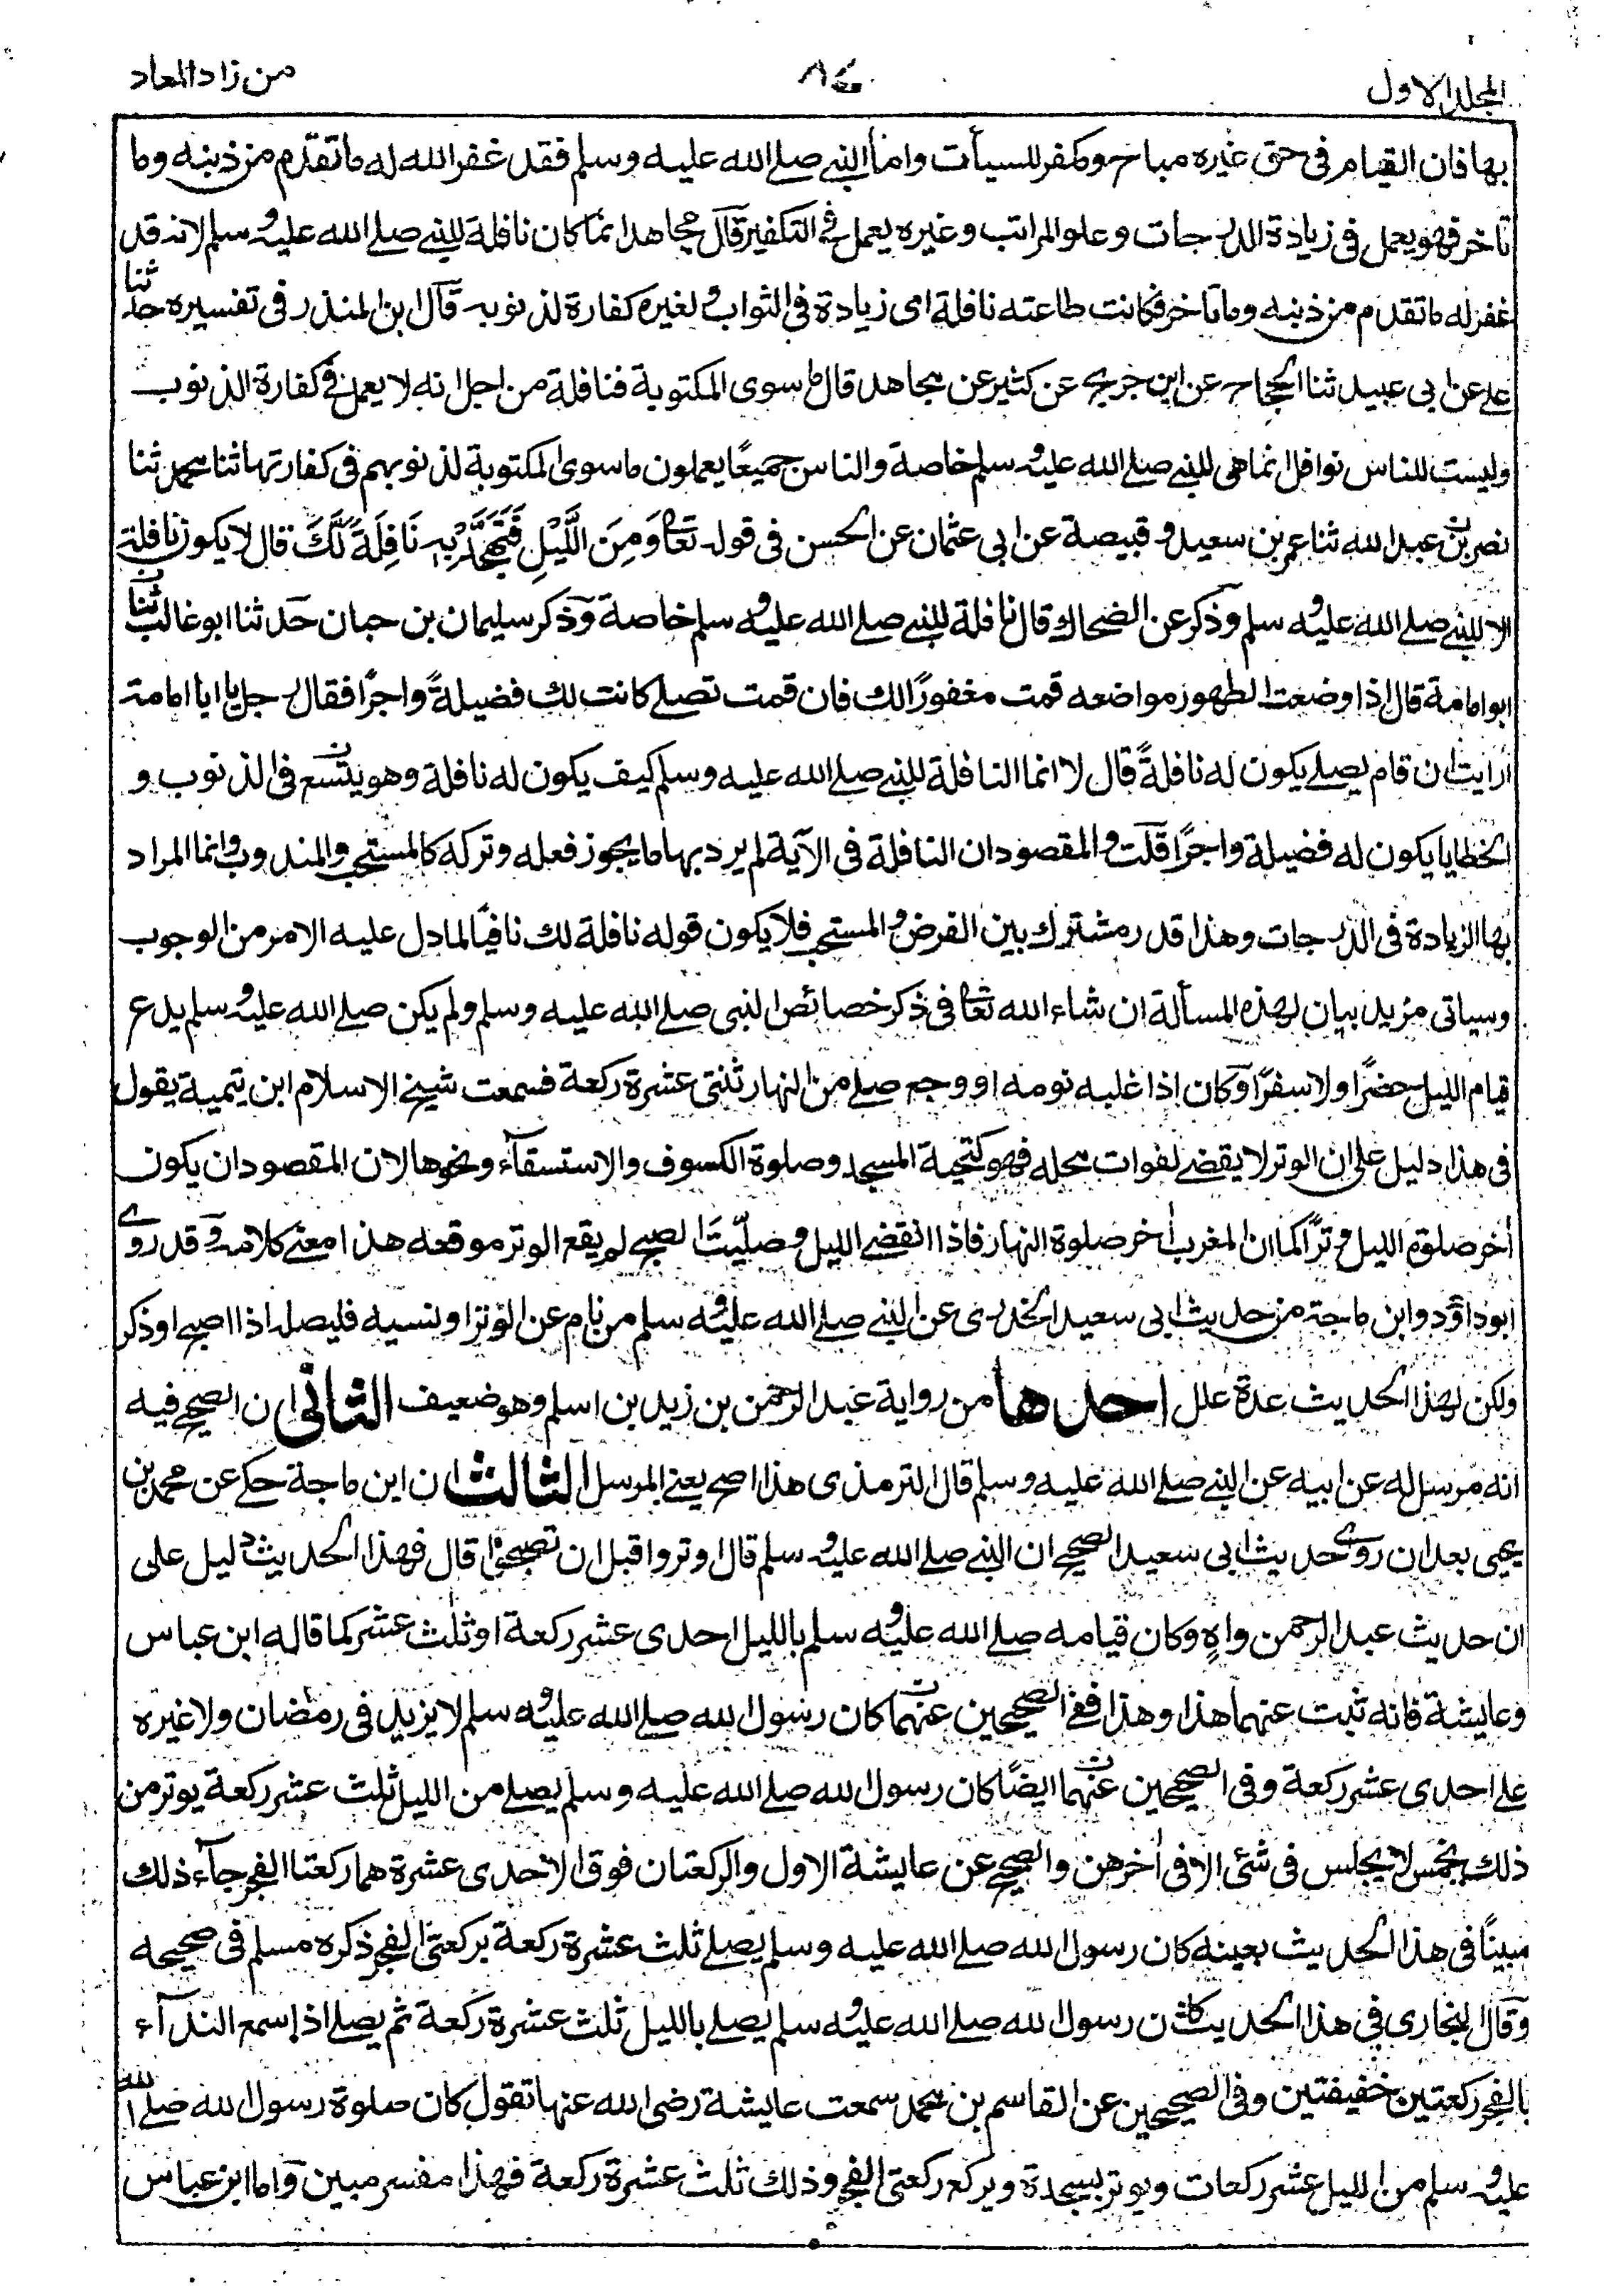 المجلد الاول
٨٤
من زاد المعاد
بها فان القيام فى حق غيره مباح ومكفر للسيأت واما النبي صلے الله عليه وسلم فقد غفر الله له ما تقدم من ذنبه وما
تاخر فهو يعمل فى زيادة الدرجات وعلو المراتب وغيره يعمل فى التكفير قال مجاهد انما كان نافلة للنبي صلے الله عليه وسلم لانه قد
غفر له ما تقدم من ذنبه وما تاخر فكانت طاعته نافلة اى زيادة فى الثواب ولغيره كفارة لذنوبه قال ابن المنذر فى تفسيره حدثنا
علے عن ابى عبيد ثنا الحجاج عن ابن جريج عن كثير عن مجاهد قال ما سوى المكتوبة فنافلة من اجل انه لا يعمل فى كفارة الذنوب
وليست للناس نوافل انما هى للنبي صلے الله عليه وسلم خاصة والناس جميعًا يعملون ما سوى المكتوبة لذنوبهم فى كفارتها ثنا محمد ثنا
نصر بن عبد الله ثنا عمر بن سعيد و قبيصة عن ابى عثمان عن الحسن فى قوله تعا وَمِنَ اللَّيْلِ فَتَهَجَّدْ بِهِ نَافِلَةً لَّكَ قال لا يكون نافلة
الا للنبي صلے الله عليه وسلم وذكر عن الضحاك قال نافلة للنبي صلے الله عليه وسلم خاصة وذكر سليمان بن حبان حدثنا ابو غالب ثنا
ابو امامة قال اذا وضعت الطهور مواضعه قمت مغفورًا لك فان قمت تصلے كانت لك فضيلةً واجرًا فقال رجل يا ابا امامة
أرايت ان قام يصلے يكون له نافلةً قال لا انما النافلة للنبي صلے الله عليه وسلم كيف يكون له نافلة وهو يتسع فى الذنوب و
الخطايا يكون له فضيلة واجرًا قلت والمقصود ان النافلة فى الآية لم يرد بها ما يجوز فعله وتركه كالمستحب والمندوب وانما المراد
بها الزيادة فى الدرجات وهذا قدر مشترك بين الفرض والمستحب فلا يكون قوله نافلة لك نافيًا لما دل عليه الامر من الوجوب
وسياتى مزيد بيان لهذه المسألة ان شاء الله تعا فى ذكر خصائص النبى صلے الله عليه وسلم ولم يكن صلے الله عليه وسلم يدع
قيام الليل حضرًا ولا سفرًا وكان اذا غلبه نومه او وجع صلے من النهار ثنتى عشرة ركعة فسمعت شيخ الاسلام ابن تيمية يقول
فى هذا دليل على ان الوتر لا يقضے لفوات محله فهو كتحية المسجد وصلوة الكسوف والاستسقآء ونحوها لان المقصود ان يكون
أخر صلوة الليل وترًا كما ان المغرب أخر صلوة النهار فاذا انقضے الليل وصلّيت الصبح لم يقع الوتر موقعه هذا معنے كلامه وقد روے
ابو داؤد وابن ماجة من حديث ابى سعيد الخدرى عن النبي صلے الله عليه وسلم من نام عن الوتر او نسيه فليصله اذا اصبح او ذكر
ولكن لهذا الحديث عدة علل احدها من رواية عبد الرحمن بن زيد بن اسلم وهو ضعيف الثانى ان الصحيح فيه
انه مرسل له عن ابيه عن النبي صلے الله عليه وسلم قال الترمذى هذا اصح يعنے المرسل الثالث ان ابن ماجة حكے عن محمد بن
يحيى بعد ان روے حديث ابى سعيد الصحيح ان النبي صلے الله عليه وسلم قال اوتروا قبل ان تصبحوا قال فهذا الحديث دليل على
ان حديث عبد الرحمن واهٍ وكان قيامه صلے الله عليه وسلم بالليل احدى عشر ركعة او ثلث عشر كما قاله ابن عباس
وعايشة فانه ثبت عنهما هذا وهذا ففے الصحيحين عنهما كان رسول الله صلے الله عليه وسلم لا يزيد فى رمضان ولا غيره
علے احدى عشر ركعة وفى الصحيحين عنهما ايضًا كان رسول الله صلے الله عليه وسلم يصلے من الليل ثلث عشر ركعة يوتر من
ذلك بخمس لا يجلس فى شئى الا فى أخرهن والصحيح عن عايشة الاول والركعتان فوق الاحدى عشرة هما ركعتا الفجر جآء ذلك
مبينًا فى هذا الحديث بعينه كان رسول الله صلے الله عليه وسلم يصلے ثلث عشرة ركعة بركعتى الفجر ذكره مسلم فى صحيحه
وقال البخارى فى هذا الحديث كان رسول الله صلے الله عليه وسلم يصلے بالليل ثلث عشرة ركعة ثم يصلے اذا سمع الندآء
بالفجر ركعتين خفيفتين وفى الصحيحين عن القاسم بن محمد سمعت عايشة رضى الله عنها تقول كان صلوة رسول الله صلے الله
عليه وسلم من الليل عشر ركعات ويوتر بسجدة ويركع ركعتى الفجر وذلك ثلث عشرة ركعة فهذا مفسر مبين واما ابن عباس